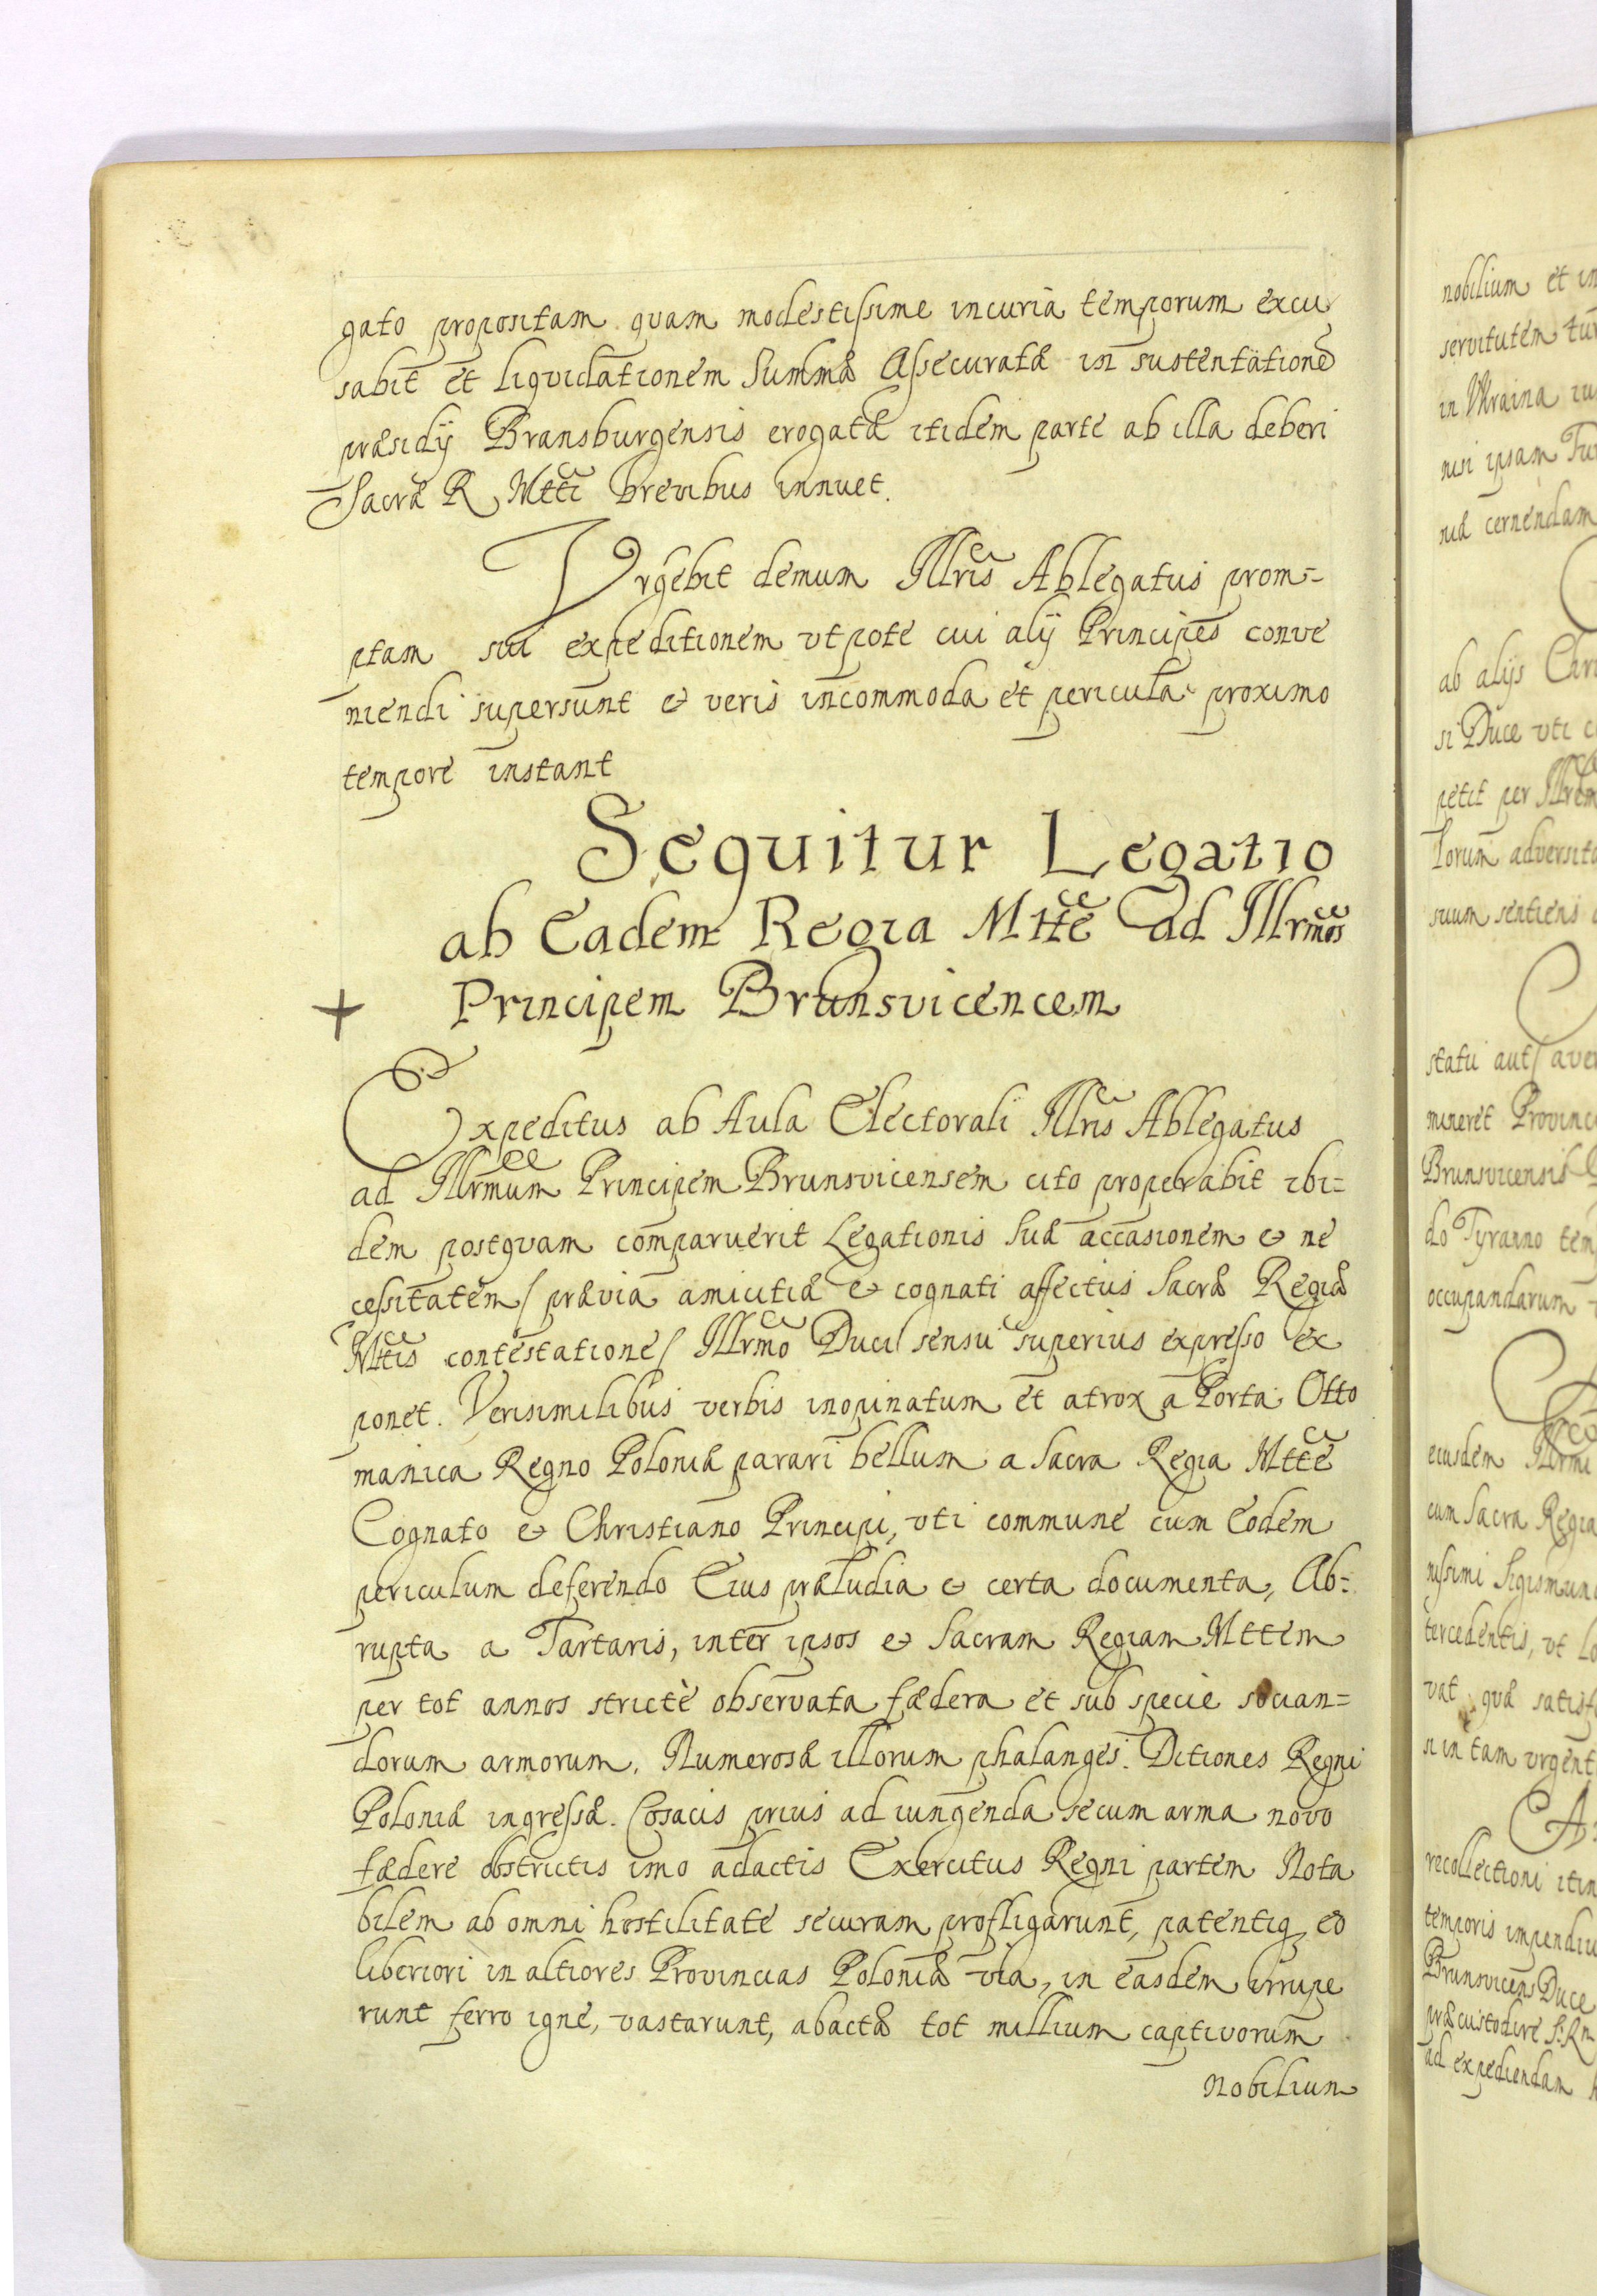 gato propositam quam modestissime incuria temporum excu
sabit et liquidationem Summæ Assecuratæ in sustentatione
præsidij Bransburgensis erogatæ itidem parte ab illa deberi
Sacræ R Mtti brevibus innuet.
Vrgebit demum Illris Ablegatus prom=
ptam sui expeditionem vtpote cui alij Principes conve
niendi supersunt & veris incommoda et pericula proximo
tempore instant
Sequitur Legatio
ab Eadem Regia Mtte ad Illrmos
+ Principem Brunsvicencem
Expeditus ab Aula Electorali Illris Ablegatus
ad Illrmum Principem Brunsvicensem cito properabit ibi=
dem postquam comparuerit Legationis suæ accasionem & ne
cessitatem / prævia amicitiæ & cognati affectus Sacræ Regiæ
Mttis contestatione / Illrmo Duci sensu superius expresso ex
ponet. Verisimilibus verbis inopinatum et atrox a Porta Otto
manica Regno Poloniæ parari bellum a Sacra Regia Mtte
Cognato & Christiano Principi, vti commune cum Eodem
periculum deferendo Eius præludia & certa documenta, Ab=
rupta a Tartaris, inter ipsos & Sacram Regiam Mttem
per tot annos strictè observata fædera et sub specie socian=
dorum armorum. Numerosæ illorum phalanges. Ditiones Regni
Poloniæ ingressæ. Cosacis prius ad iungenda secum arma novo
fædere obstrictis imo adactis Exercitus Regni partem Nota
bilem ab omni hostilitate securam profligarunt, patentiq eo
liberiori in altiores Provincias Poloniæ via, in easdem irrupe
runt ferro igne, vastarunt, abactæ tot millium captivorum
Nobilium
nobilium et in
servitutem
in Vkraina
nisi ipsam
niæ cernendam
ab alijs
si Duce vti
petit per Illrem
lorum
suum sentiens
statu aut
mineret
Brunsvicensis
do Tyranno
occupandarum
eiusdem Illrmi
cum Sacra Regia
nissimi
tercedentis, vt
vat quæ
si in tam
recollectioni
temporis
Brunsvicens Duce
præcustodire
ad expediendam